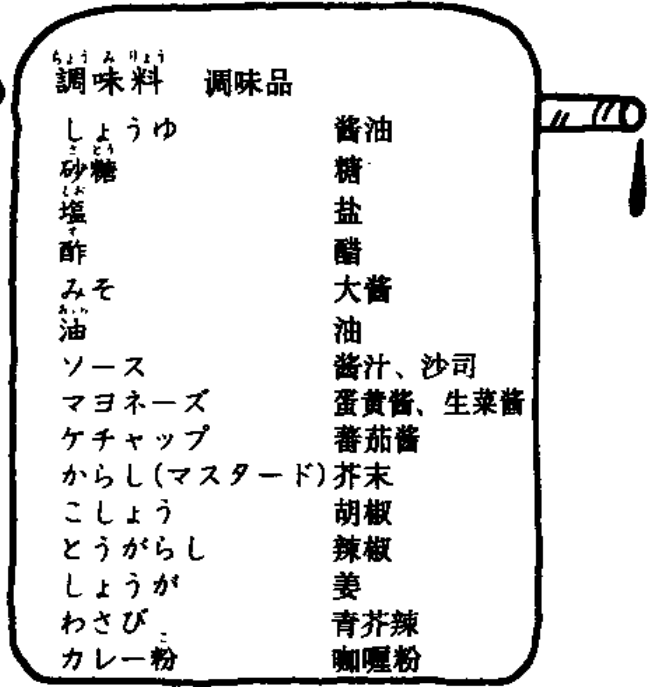 調味料 调味品
しょうゆ 酱油
砂糖 糖
塩 盐
酢 醋
みそ 大酱
油 油
ソース 酱汁、沙司
マヨネーズ 蛋黄酱、生菜酱
ケチャップ 蕃茄酱
からし(マスタード) 芥末
こしょう 胡椒
とうがらし 辣椒
しょうが 姜
わさび 青芥辣
カレー粉 咖喱粉